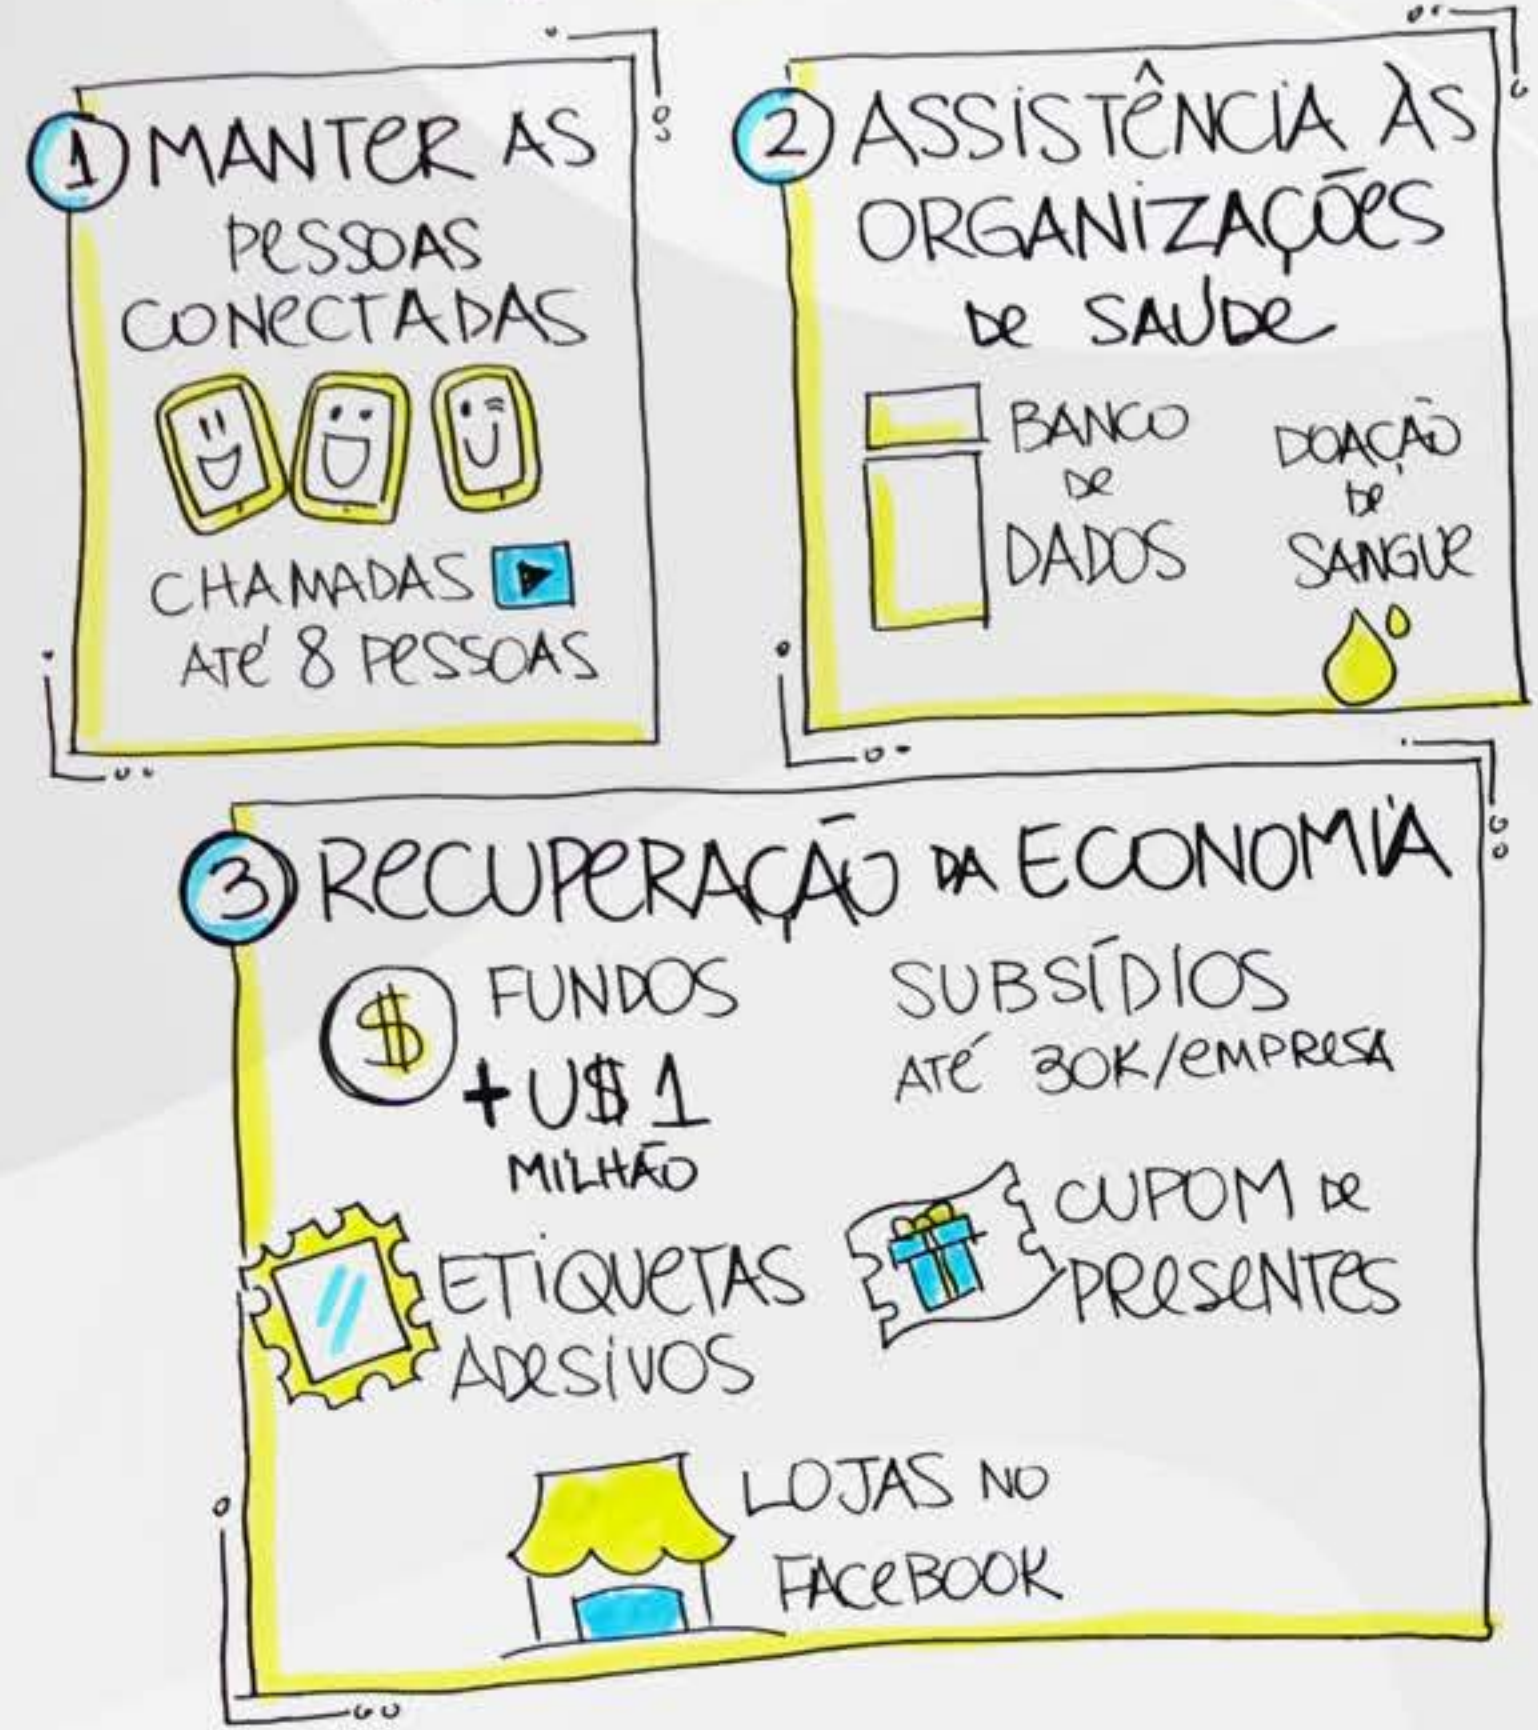 1 MANTER AS
PESSOAS
CONECTADAS
CHAMADAS
ATÉ 8 PESSOAS
2 ASSISTÊNCIA ÀS
ORGANIZAÇÕES
DE SAÚDE
BANCO
DE
DADOS
DOAÇÃO
DE
SANGUE
3 RECUPERAÇÃO DA ECONOMIA
$
FUNDOS
+U$ 1
MILHÃO
SUBSÍDIOS
ATÉ 30K/EMPRESA
ETIQUETAS
ADESIVOS
CUPOM DE
PRESENTES
LOJAS NO
FACEBOOK